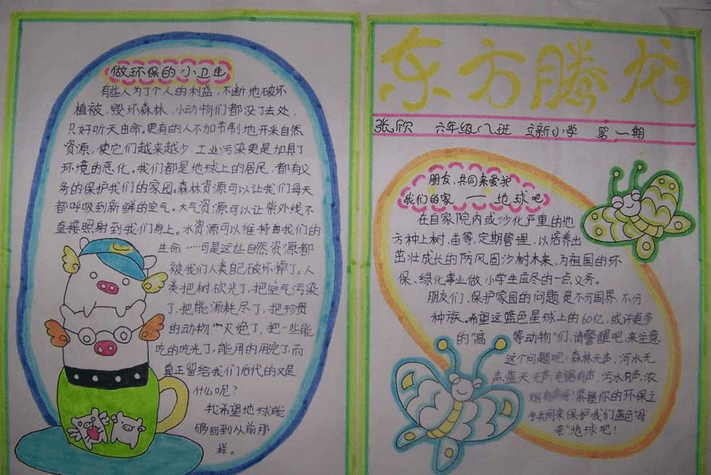 做环保的小卫生
有些人为了个人的利益,不断地破坏
植被,毁坏森林,小动物们都没了去处,
只好听天由命。更有的人不加节制地开来自然
资源,使它们越来越少。工业污染更是加具了
环境的恶化。我们都是地球上的居民,都有义
务的保护我们的家园。森林资源可以让我们每天
都呼吸到新鲜的空气。大气资源可以让紫外线不
直接照射到我们身上。水资源可以维持自我们的
生命……可是这些自然资源都
被我们人类自己破坏掉了。人
类把树砍光了,把空气污染
了,把能源耗尽了,把珍贵
的动物“灭绝了,把一些能
吃的吃光了,能用的用完了,而
真正留给我们后代的又是
什么呢?
我希望地球能
够回到从前那
样。
东方腾龙
张欣 六年级八班 立新小学 第一期
朋友,共同来爱我
我们的家——地球吧
在自家院内或沙化严重的地
方种上树、苗等,定期管理,以培养出
茁壮成长的防风固沙树木来,为祖国的环
保、绿化事业做小学生应尽的一点义务。
朋友们,保护家园的问题是不分国界,不分
种族。希望这蓝色星球上的60亿,或许更多
的“高等动物”们,请警醒吧,来注意
这个问题吧:森林无声,河水无
声,蓝天无声,电锯有声,污水有声,浓
烟有声啊!紧握你的环保之
手共同来保护我们蓝色“母
亲”地球吧!